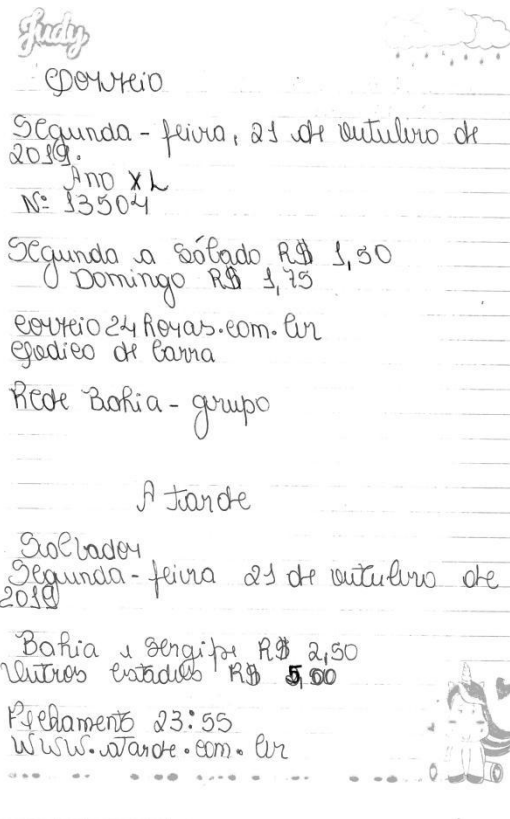 Judy
Correio
Segunda-feira, 21 de outubro de
2019.
Ano XL
Nº 13504
Segunda a Sábado R$ 1,50
Domingo R$ 1,75
correio24horas.com.br
Codico de barra
Rede Bahia - grupo
A tarde
Salvador
Segunda-feira 21 de outubro de
2019
Bahia e Sergipe R$ 2,50
Outros estados R$ 5,00
Fechamento 23:55
www.atarde.com.br